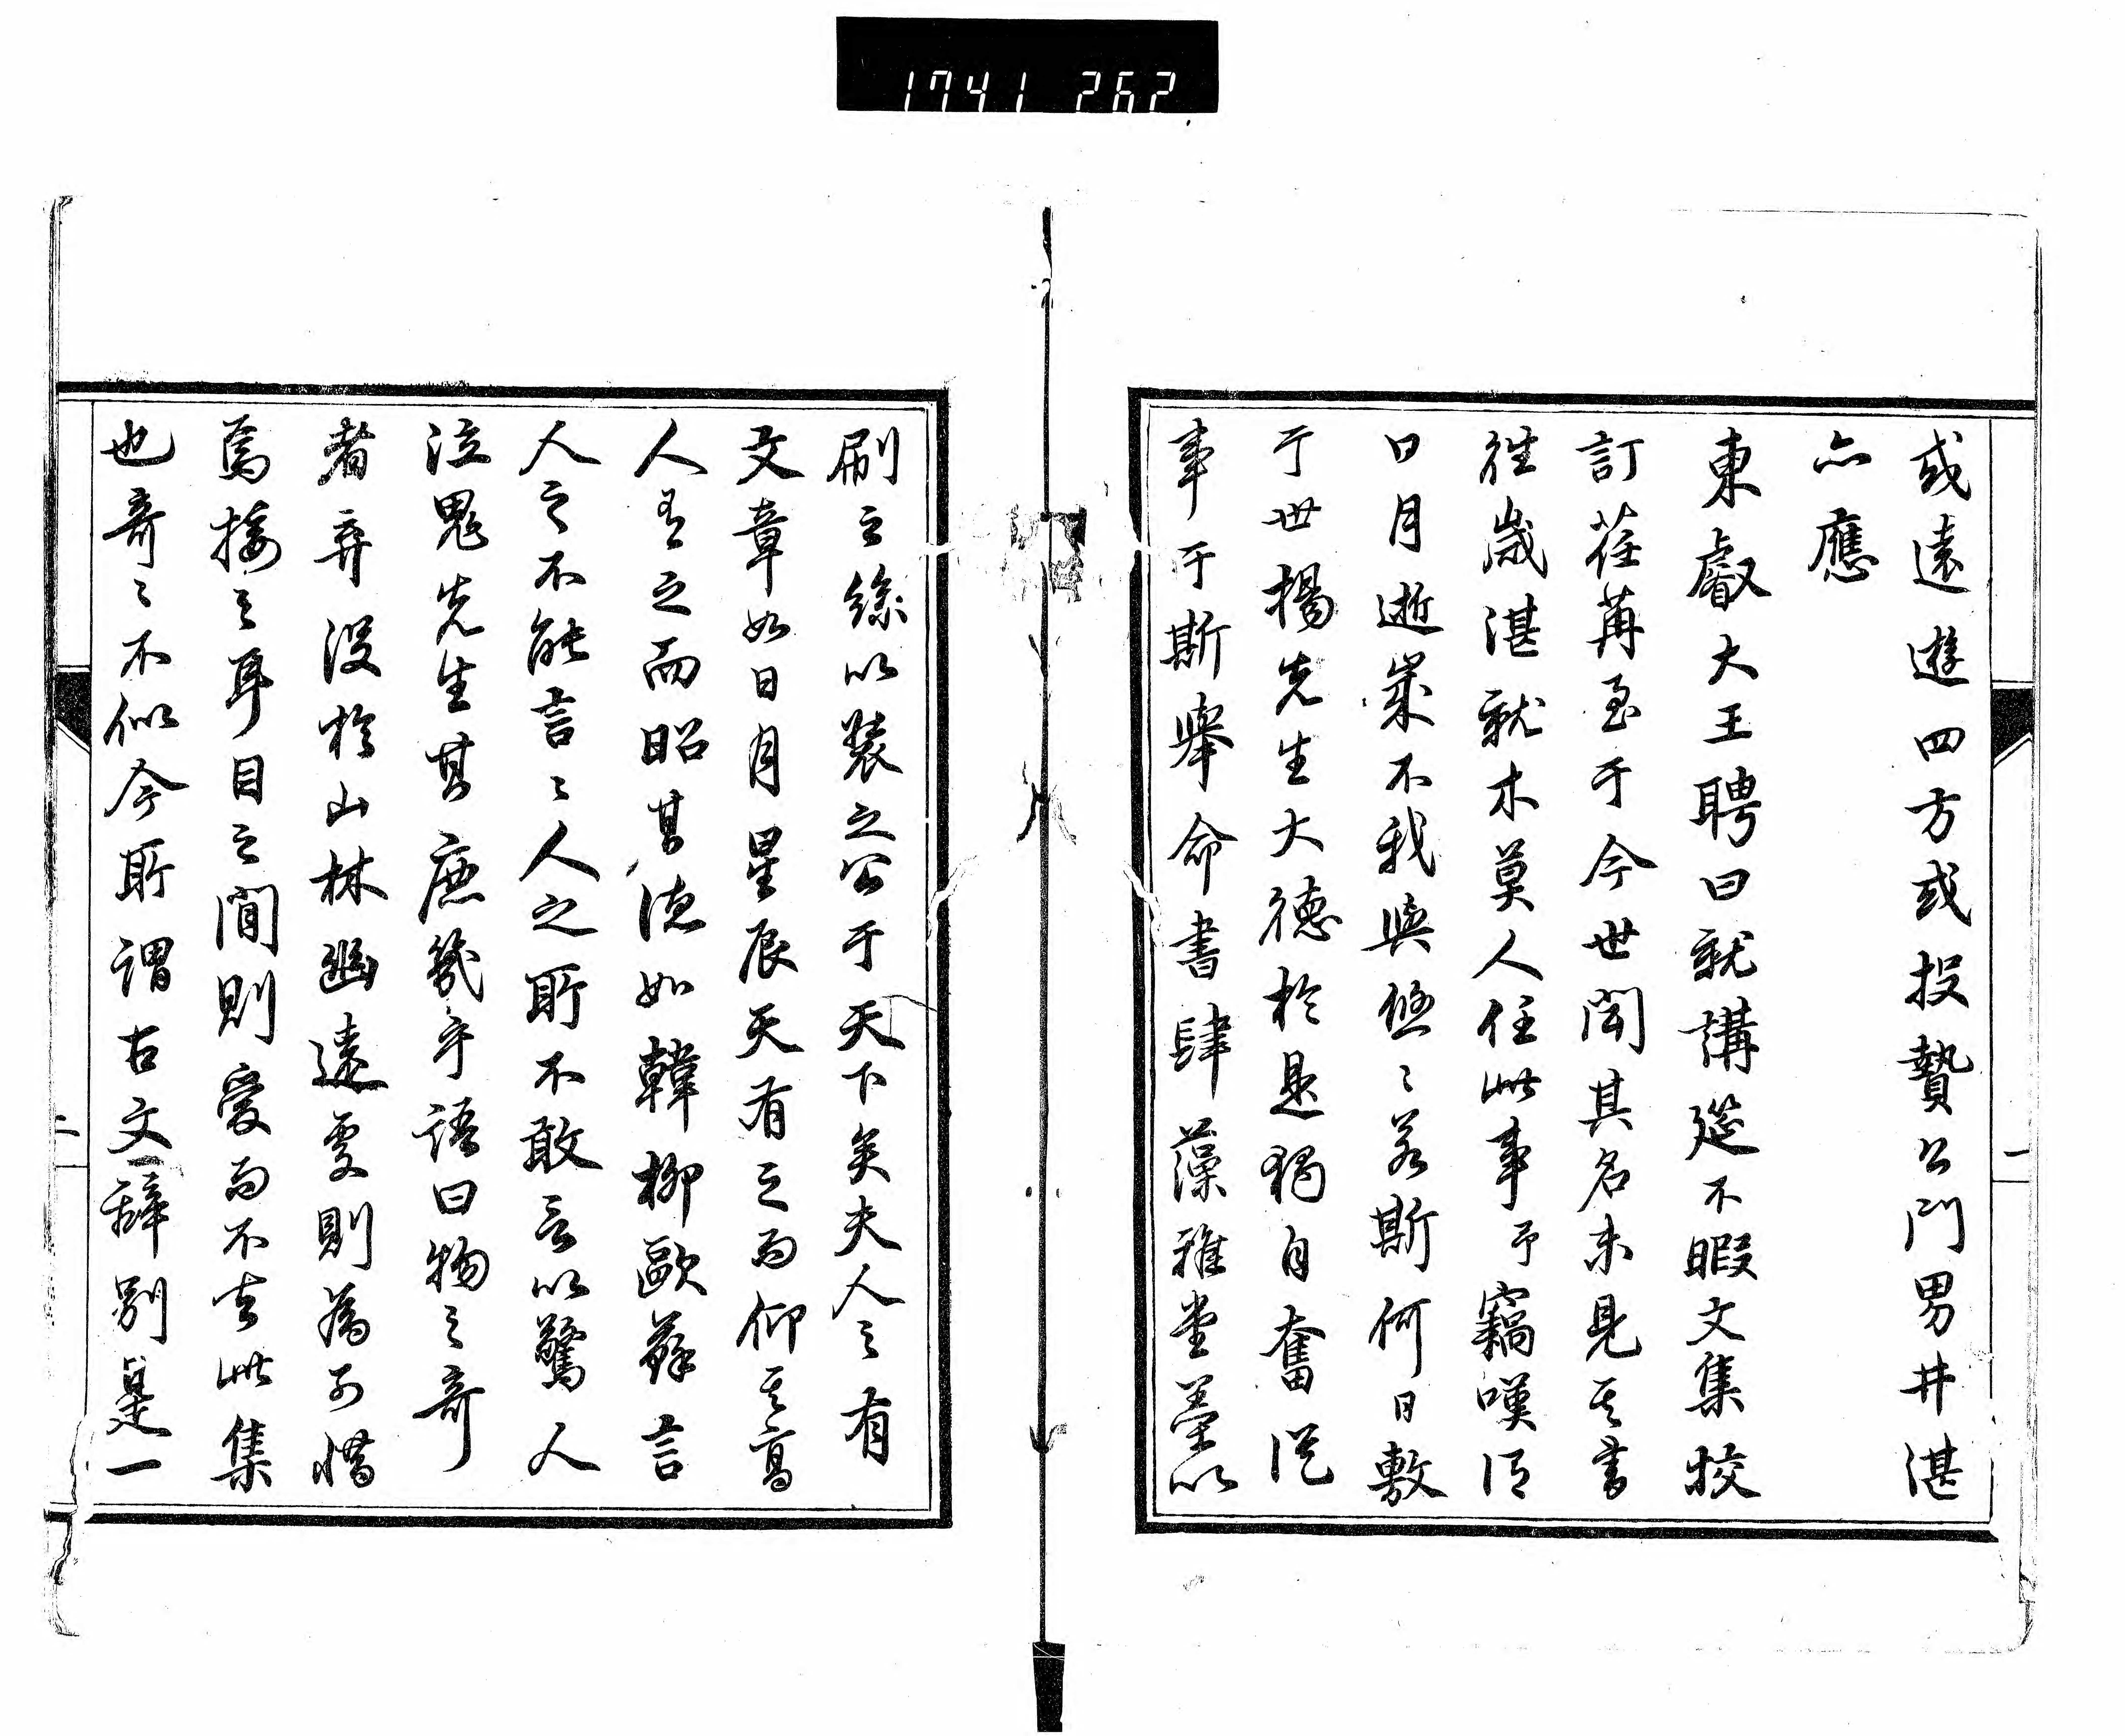 1741 262
或遠遊四方或投贄公門男井湛
亦應
東叡大王聘曰就講筵不暇文集校
訂荏苒至于今世聞其名未見其書
往歲湛就木莫人任此事予竊嘆曰
日月逝矣歲不我與悠々若斯何日敷
于世揚先生大德於是獨自奮從
事于斯舉命書肆藻雅堂藁以
刷之絲以裝之公于天下矣夫人之有
文章如日月星辰天有之而仰其高
人有之而昭其德如韓柳歐蘇言
人之不能言々人之所不敢言以驚人
泣鬼先生其庶幾乎語曰物之奇
者弃沒於山林幽遠處則為可惜
焉接之耳目之間則愛而不去此集
也奇々不似今所謂古文辭別是一
一
二